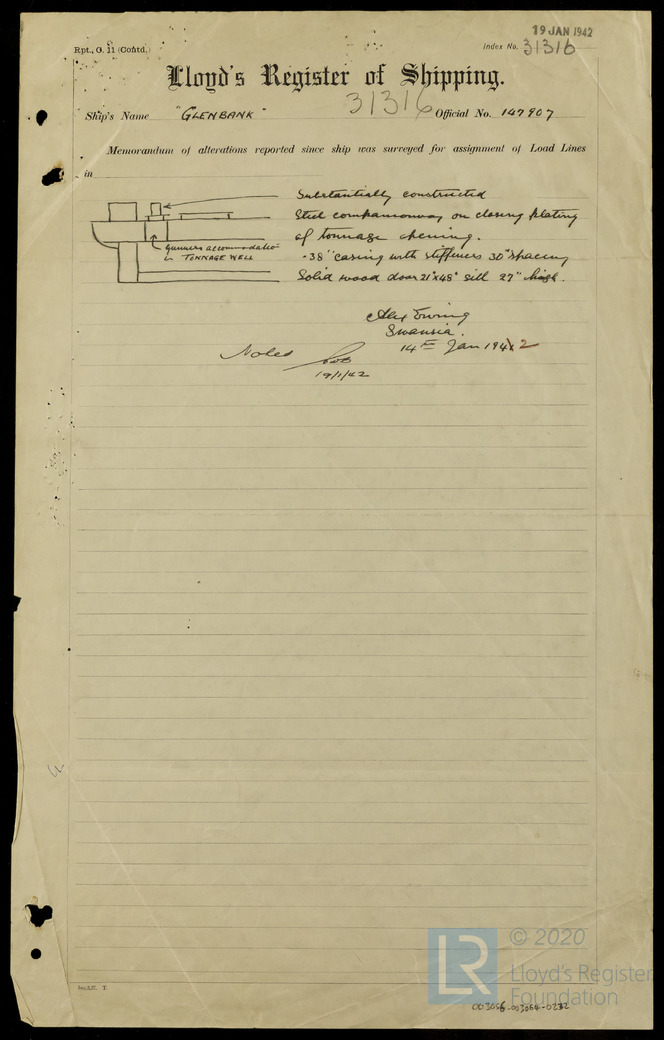 19 JAN 1942
Rpt., G. 11 (Contd.)
Index No. 31316
Lloyd's Register of Shipping.
31316
Ship's Name "GLENBANK" Official No. 147907
Memorandum of alterations reported since ship was surveyed for assignment of Load Lines
in
Substantially constructed
Steel companionway on closing plating
of tonnage opening.
Gunners accommodation
in TONNAGE WELL
.38" casing with stiffeners 30" spacing
Solid wood door 21"x48" sill 27" high.
Alex Ewing
Swansea.
14th Jan 1942
Noted
19/1/42
T.
© 2020
LR
Lloyd's Register
Foundation
003056-003064-0232